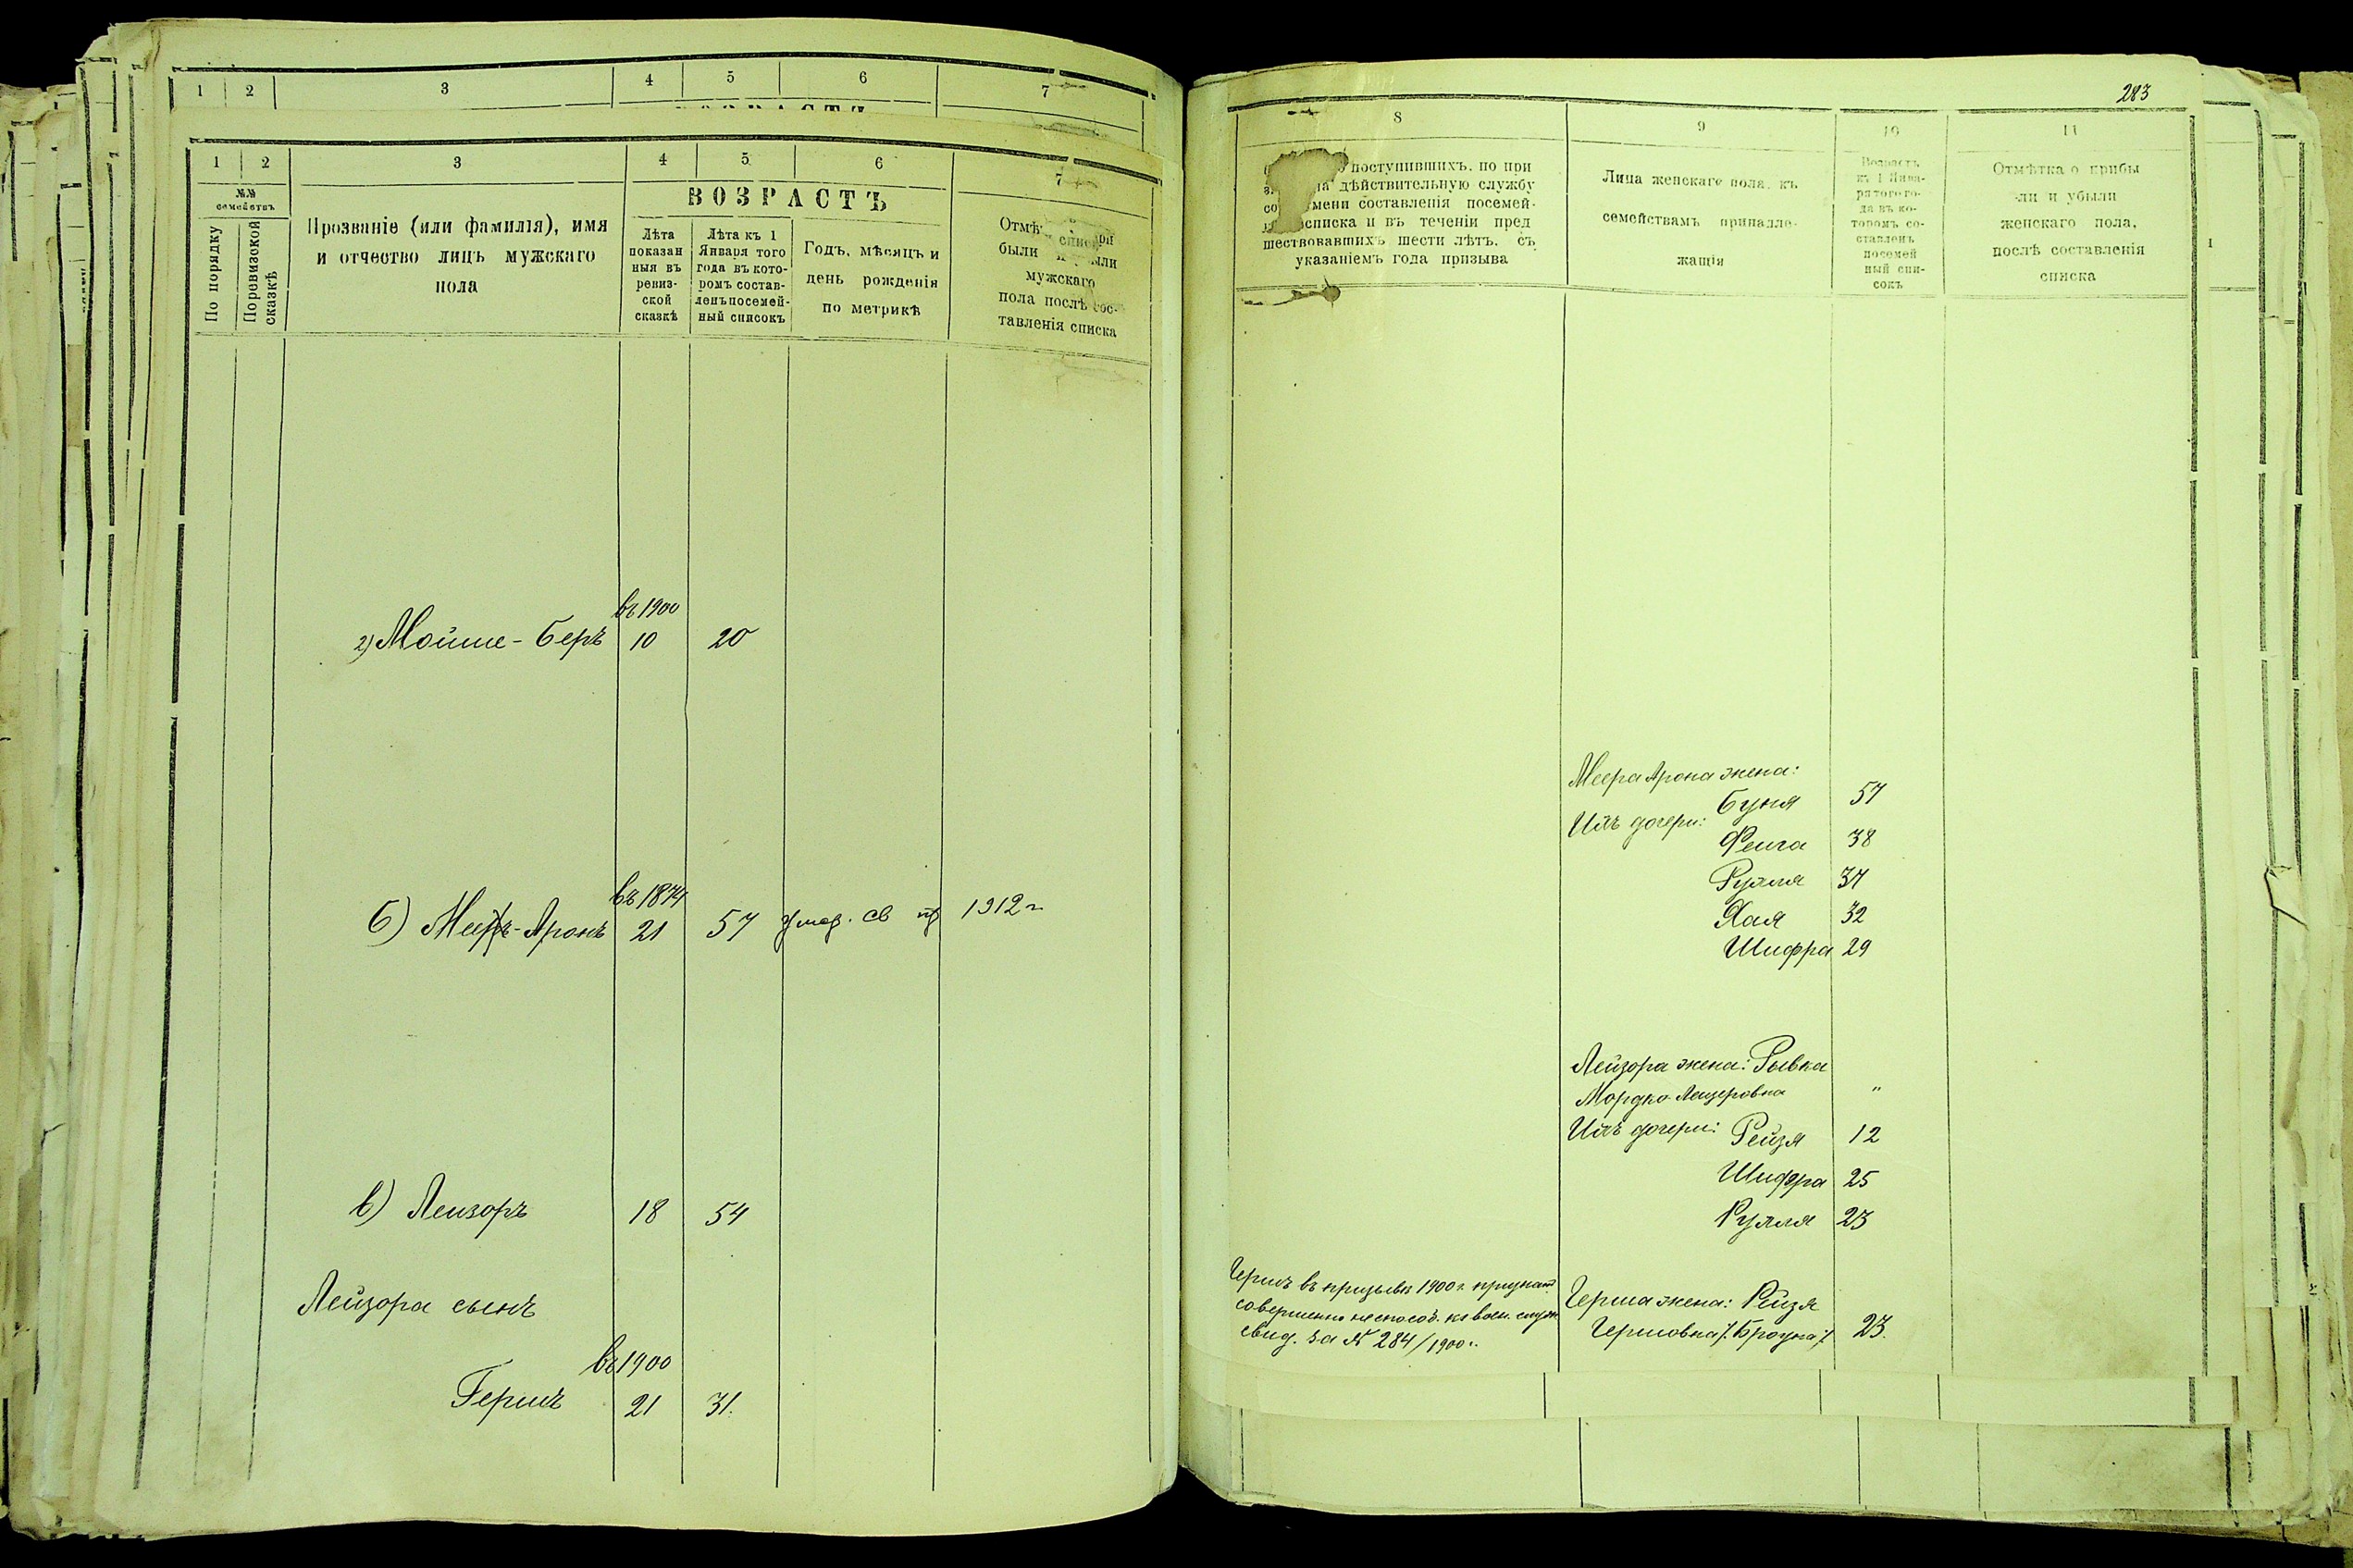 1 2 3 4 5 6 7
1 2 3 4 5 6 7
№№ семействъ
По порядку
По ревизской сказкѣ
Прозваніе (или фамилія), имя
и отчество лицъ мужскаго
пола
ВОЗРАСТЪ
Лѣта
показан
ныя въ
ревиз-
ской
сказкѣ
Лѣта къ 1
Января того
года въ кото-
ромъ состав-
ленъ посемей-
ный списокъ
Годъ, мѣсяцъ и
день рожденія
по метрикѣ
были
мужскаго
пола послѣ сос-
тавленія списка
въ 1900
2) Мойше-Беръ 10 20
въ 1874
б) Меиръ-Аронъ 21 57 умер. св 1912 г
в) Лейзоръ 18 54
Лейзора сынъ
въ 1900
Гершъ 21 31.
283
8 9 10 11
поступившихъ, по при
дѣйствительную службу
составленія посемей-
списка и въ теченіи пред
шествовавшихъ шести лѣтъ, съ
указаніемъ года призыва
Лица женскаго пола, къ
семействамъ принадле-
жащія
Возрастъ
къ 1 Янва-
ря того го-
да въ ко-
торомъ со-
ставленъ
посемей
ный спи-
сокъ
Отмѣтка о прибы
-ли и убыли
женскаго пола,
послѣ составленія
списка
Меера Арона жена:
Буня 57
Ихъ дочери:
Фейга 38
Рухля 34
Хая 32
Шифра 29
Лейзора жена: Рывка
Мордко-Лейзеровна "
Ихъ дочери: Рейзя 12
Шифра 25
Рухля 23
Гершъ въ призывъ 1900 г. признан
совершенно неспособ. къ воен. служ
свид. за № 284/1900 г.
Герша жена: Рейзя
Гершовна /: Броуна :/ 23.